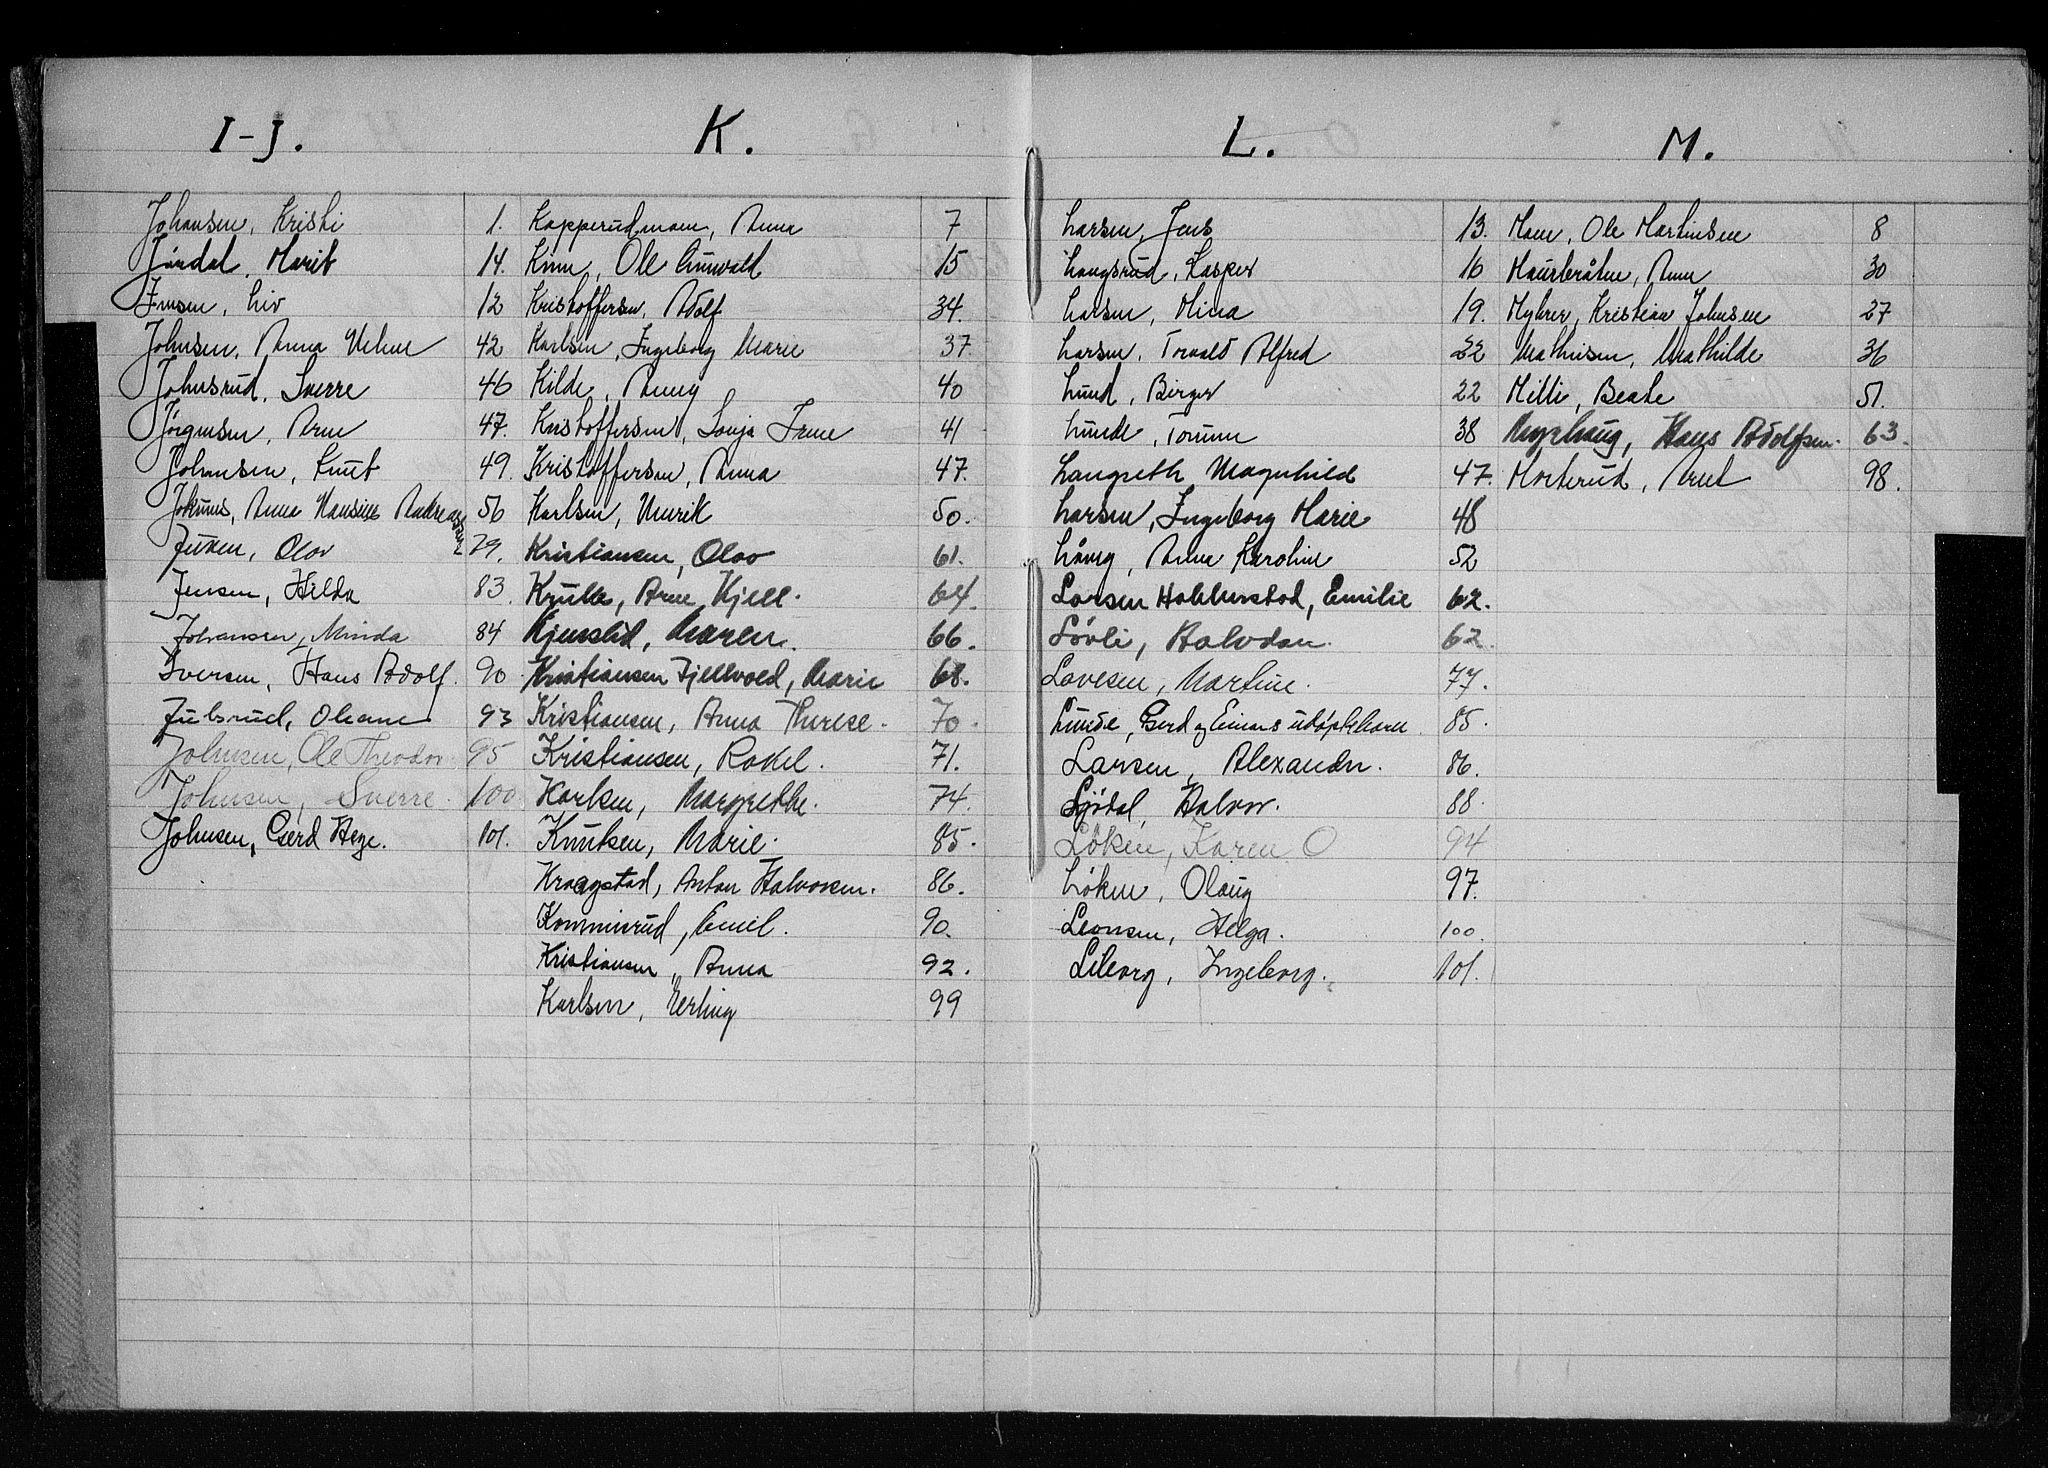 I-J.
Johansen, Kristi 1.
Jördal, Marit 14.
Jensen, Liv 12
Johnsen, Anna Helene 42
Johnsrud, Sverre 46
Jörgensen, Arne 47.
Johansen, Knut 49.
Anna Hansine Andreassen 56
Juven, Olov 79.
Jensen, Hilda 83.
Johansen, Minda 84
Iversen, Hans Adolf. 90
Julsrud, Oleane 93
Johnsen, Ole Theodor 95
Johnsen, Sverre. 100
Johnsen, Gerd Hege. 101.
K.
Kopperudmoen, Anna 7
Ole Gunvald 15
Kristoffersen, Adolf 34.
Karlsen, Ingeborg Marie 37.
Kilde, Anny 40
Kristoffersen, Sonja Irene 41
Kristoffersen, Anna 47.
Karlsen, Henrik 50.
Kristiansen, Olov 61.
Arne Kjell. 64.
Kjemslid, Maren. 66.
Kristiansen Fjellvoed, Marie 68.
Kristiansen, Anna Therese. 70.
Kristiansen, Rakel. 71.
Karlsen, Margrethe. 74.
Knutsen, Marie. 85.
Kraagstad, Anton Halvorsen. 86.
Komminsrud, Emil. 90.
Kristiansen, Anna 92.
Karlsen, Erling 99
L.
Larsen, Jens 13.
Langsrud, Kasper 16
Larsen, Mina 19.
Larsen, Torvald Alfred 22
Lund, Birger 22
Lunde, Torunn 38
Langseth Magnhild 47.
Larsen, Ingeborg Marie 48
Anne Karoline 52
Larsen Emilie 62.
Lövli, Halvdan. 62.
Lovesen, Martine. 77.
Lunde, Gerd og Einars udöpte barn 85.
Larsen, Alexander. 86.
Sjödal, Halvor. 88.
Löken, Karen O 94
Löken, Olaug 97.
Leonsen, Helga. 100.
Liborg, Ingeborg. 101.
M.
Moen, Ole Martinsen 8
Maurbråten, Anne 30
Myhrer, Kristian Johnsen 27
Mathisen, Mathilde 36
Beate 51.
Myrhaug, Hans Adolfsen. 63.
Morterud, Arnt 98.